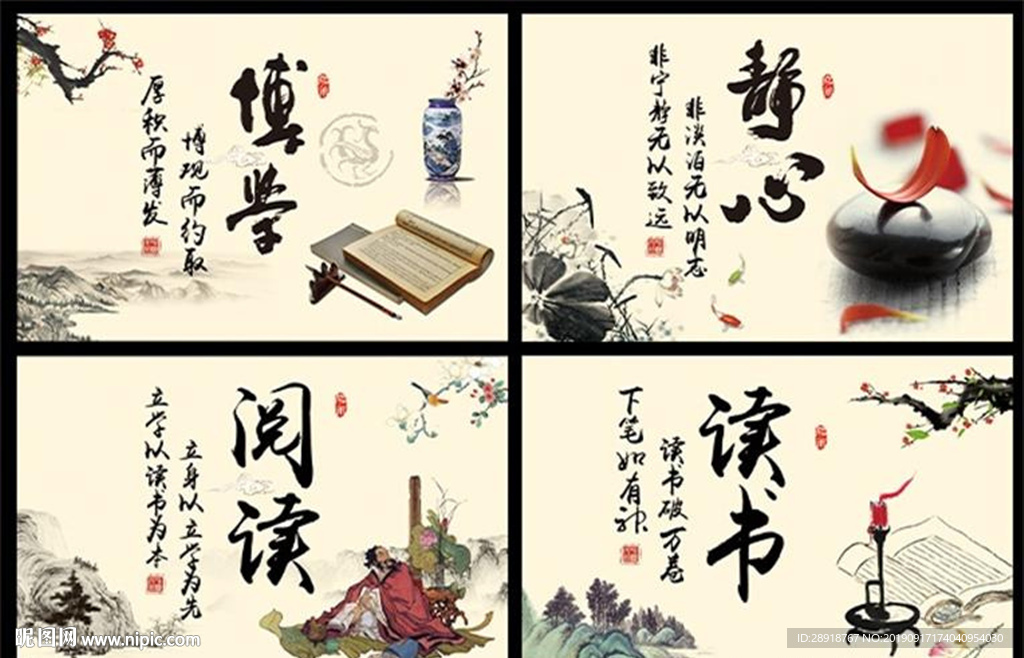 博学
博观而约取
厚积而薄发
静心
非淡泊无以明志
非宁静无以致远
阅读
立身以立学为先
立学以读书为本
读书
读书破万卷
下笔如有神
昵图网 www.nipic.com
ID:28918767 NO:20190917174040954030